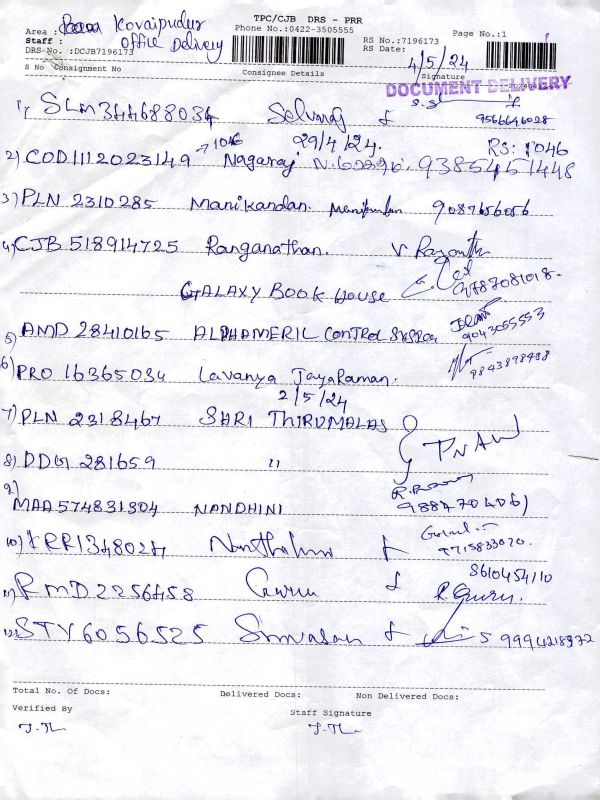 TPC/CJB DRS - PRR
Area : Kovaipudur
Phone No.:0422-3505555
RS No.:7196173
Page No.:1
Staff : Office Delivery
RS Date: 4/5/24
DRS-No. :DCJB7196173
S No Consignment No Consignee Details Signature
DOCUMENT DELIVERY
1) SLM344688034 Selvaraj & 9566646028
29/4/24. RS: 1046
2) COD1112023149 → 1046 Nagaraj 9385451448
3) PLN 2310285 Manikandan. Manikandan 9087656056
4) CJB 518914725 Ranganathan. V.
GALAXY BOOK HOUSE 9787081018.
5) AMD 28410165 ALPHAMERIL CONTROL 9043055553
6) PRO 16365034 Lavanya JayaRaman. 9843898498
2/5/24
7) PLN 2318467 SHRI THIRUMALAS
8) DDG 281659 "
9) MAA574831304 NANDHINI
10) KRR1348028
11) RMD2256458 Guru & 8610454110
R. Guru.
12) STY6056525 Srivasan & 9994218372
Total No. Of Docs: Delivered Docs: Non Delivered Docs:
Verified By Staff Signature